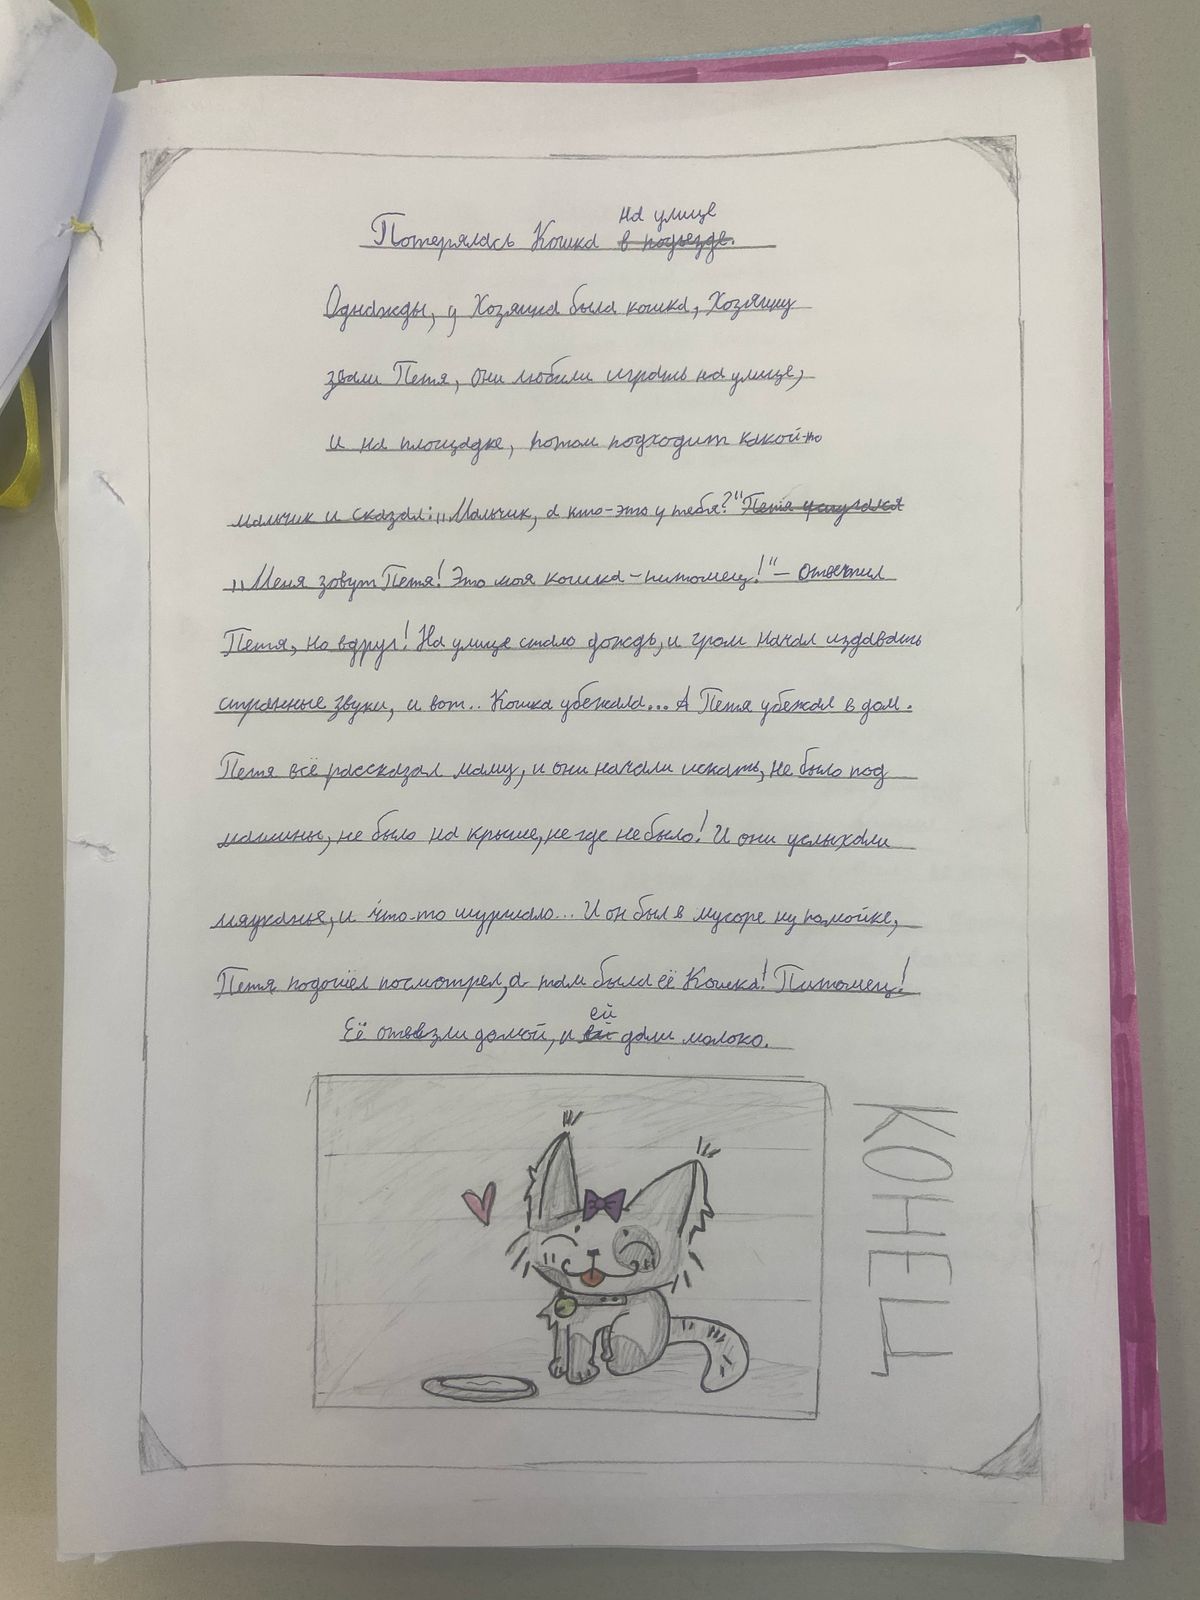 Потерялась Кошка на улице в подъезде.
Однажды, у Хозяина была кошка, Хозяину
звали Петя, они любили играть на улице,
и на площадке, потом подходит какой-то
мальчик и сказал: „Мальчик, а кто-это у тебя?“ Петя испугался
„Меня зовут Петя! Это моя кошка-питомец!“ – ответил
Петя, но вдруг! На улице стало дождь, и гром начал издавать
странные звуки, и вот.. Кошка убежала... А Петя убежал в дом.
Петя всё рассказал маму, и они начали искать, не было под
машины, не было на крыше, не где не было! И они услыхали
мяуканье, и что-то шуршало... И он был в мусоре ну помойке,
Петя подошёл посмотрел, а там была её Кошка! Питомец!
Её отвезли домой, и ей дали молоко.
КОНЕЦ